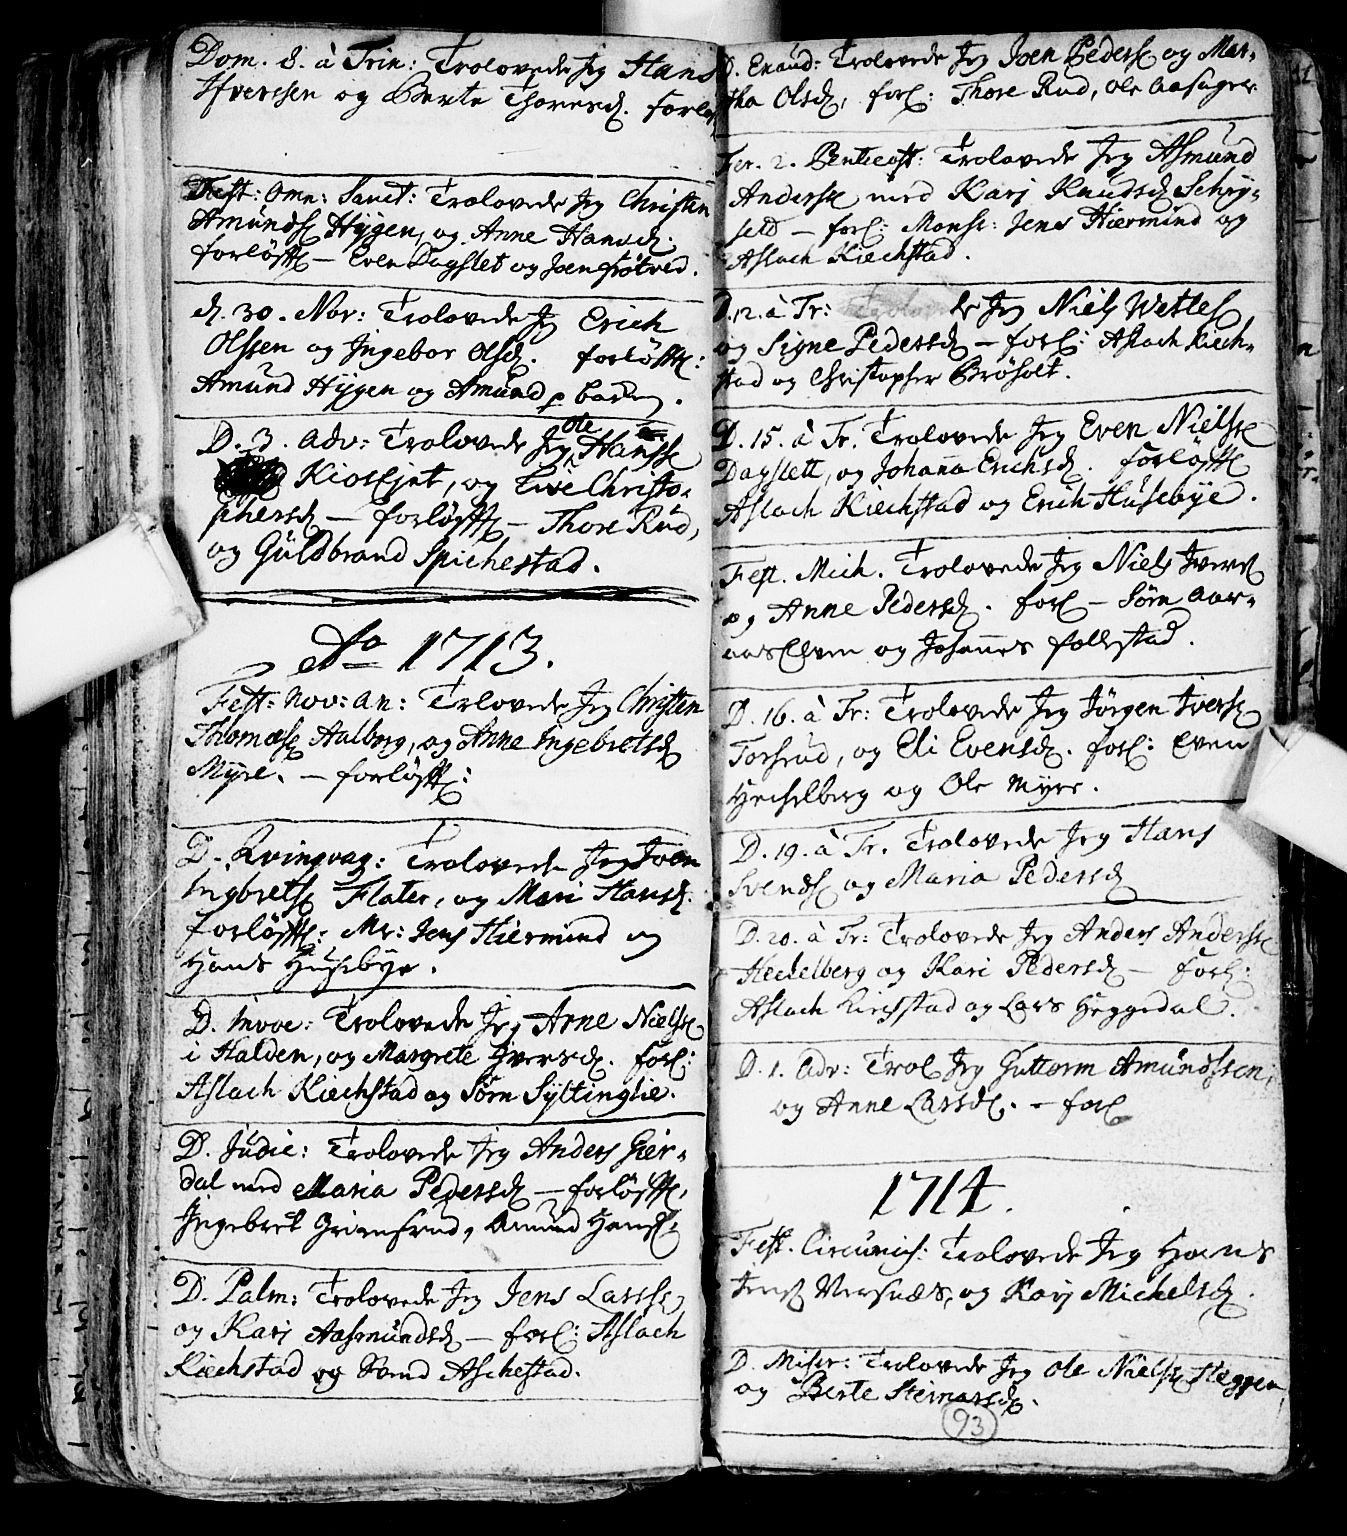 Dom. 8. à Trin: Trolovede Jeg Hans
Ifverssen og Berte Thoresd. forløf
Fest: Omn: Sanct: Trolovede Jeg Christen
Amunds Hygen, og Anne Hansd.
forløfft — Even Dagslet og Joen Grøtved.
d. 30. Nov: Trolovede Jeg Erich
Olssen og Ingebor Olsd. forløfft:
Amund Hygen og Amund
D. 3. Adv: Trolovede Jeg Ole Hanss
Kioskjet, og Live Christo-
phersd — forløfft — Thore Rud,
og Guldbrand Spichestad.
Ao 1713.
Fest: Nov: an: Trlovede Jeg Christen
Thomæs Aalborg, og Anne Ingebretsd
Myre. — forløfft:
D. Qvinqvag: Trolovede Jeg Joen
Ingbrets Flater, og Mari Hansd.
forløfft: Mr: Jens Hiermind og
Hans Husebye.
D. Invoc: Trolovede Jeg Arne Niels
i Halden, og Margrete Iversd. forl:
Aslach Kiechstad og Sørn Syltinglie.
D. Judic: Trolovede Jeg Anders Gier-
dal med Maria Pedersd — forløfft,
Ingebret Grimsrud, Amund Hans
D. Palm: Trolovede Jeg Jens Larss
og Kari Aasmundsd — forl: Aslach
Kiechstad og Svend Aschestad.
D. Exaud: Trolovede Jeg Joen Peders og Mar-
tha Olsd, forl: Thore Rud, Ole Aasager
Fer. 2. Pentecost: Trolovede Jeg Asmund
Anders med Karj Knudsd Schry-
seth — forl: Mons: Jens Hiermind og
Aslach Kiechstad.
D. 12. à Tr: Trolovede Jeg Niels Wetles
og Signe Pedersd — forl: Aslach Kiech-
stad og Christopher Brøholt.
D. 15. à Tr. Trolovede Jeg Even Nielss
Dagslett, og Johanna Erichsd. forløfft
Aslach Kiechstad og Erich Husebye.
Fest. Mich. Trolovede Jeg Niels Ivers
og Anne Pedersd. forl — Sørn Aar-
aas Even og Johannes follestad.
D. 16. à Tr: Trolovede Jeg Jørgen Ivers
Torsrud, og Eli Evensd. forl: Even
Hechelberg og Ole Myre.
D. 19. à Tr. Trolovede Jeg Hans
Svends og Maria Pedersd
D. 20. à Tr: Trolovede Jeg Anders Anderss
Hechelberg og Kari Pedersd — forl:
Aslach Kiechstad og Lars Heggedal.
D. 1. Adv: Trol Jeg Guttorm Amundssen,
og Anne Larsd. — forl
1714.
Fest. Circumcis: Trolovede Jeg Hans
Jens Versnæs, og Karj Michelsd.
D. Miser: Trolovede Jeg Ole Niels Heggen
og Berte Steinarsd.
93